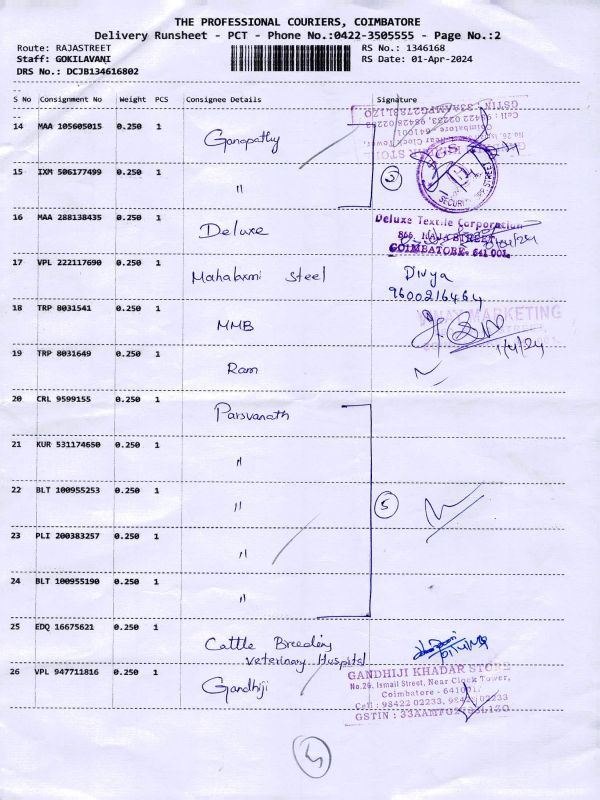 THE PROFESSIONAL COURIERS, COIMBATORE
Delivery Runsheet - PCT - Phone No.:0422-3505555 - Page No.:2
Route: RAJASTREET
RS No.: 1346168
Staff: GOKILAVANI
RS Date: 01-Apr-2024
DRS No.: DCJB134616802
S No Consignment No Weight PCS Consignee Details Signature
14 MAA 105605015 0.250 1 Ganapathy
15 IXM 506177499 0.250 1 "
2
16 MAA 288138435 0.250 1 Deluxe
Deluxe Textile Corporation
COIMBATORE. 641 001.
17 VPL 222117690 0.250 1 Mahalaxmi Steel Divya
9600216464
18 TRP 8031541 0.250 1 MMB
MARKETING
1/4/24
19 TRP 8031649 0.250 1 Ram
20 CRL 9599155 0.250 1 Parsvanath
21 KUR 531174650 0.250 1 "
22 BLT 100955253 0.250 1 "
5
23 PLI 200383257 0.250 1 "
24 BLT 100955190 0.250 1 "
25 EDQ 16675621 0.250 1 Cattle Breeding
Veterinary Hospital
26 VPL 947711816 0.250 1 Gandhiji
GANDHIJI KHADAR STORE
No.26, Ismail Street, Near Clock Tower,
Coimbatore - 641001.
Cell : 98422 02233, 98428 02233
GSTIN :